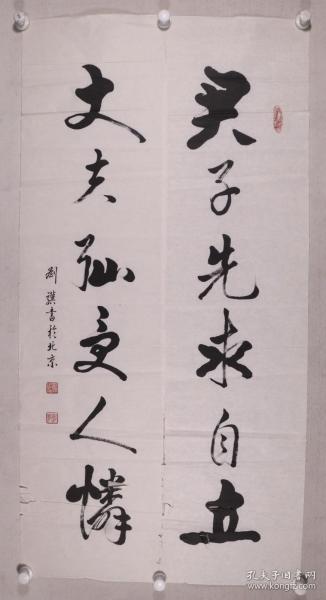 君子先求自立
丈夫耻受人憐
劉 書於北京
孔夫子旧书网